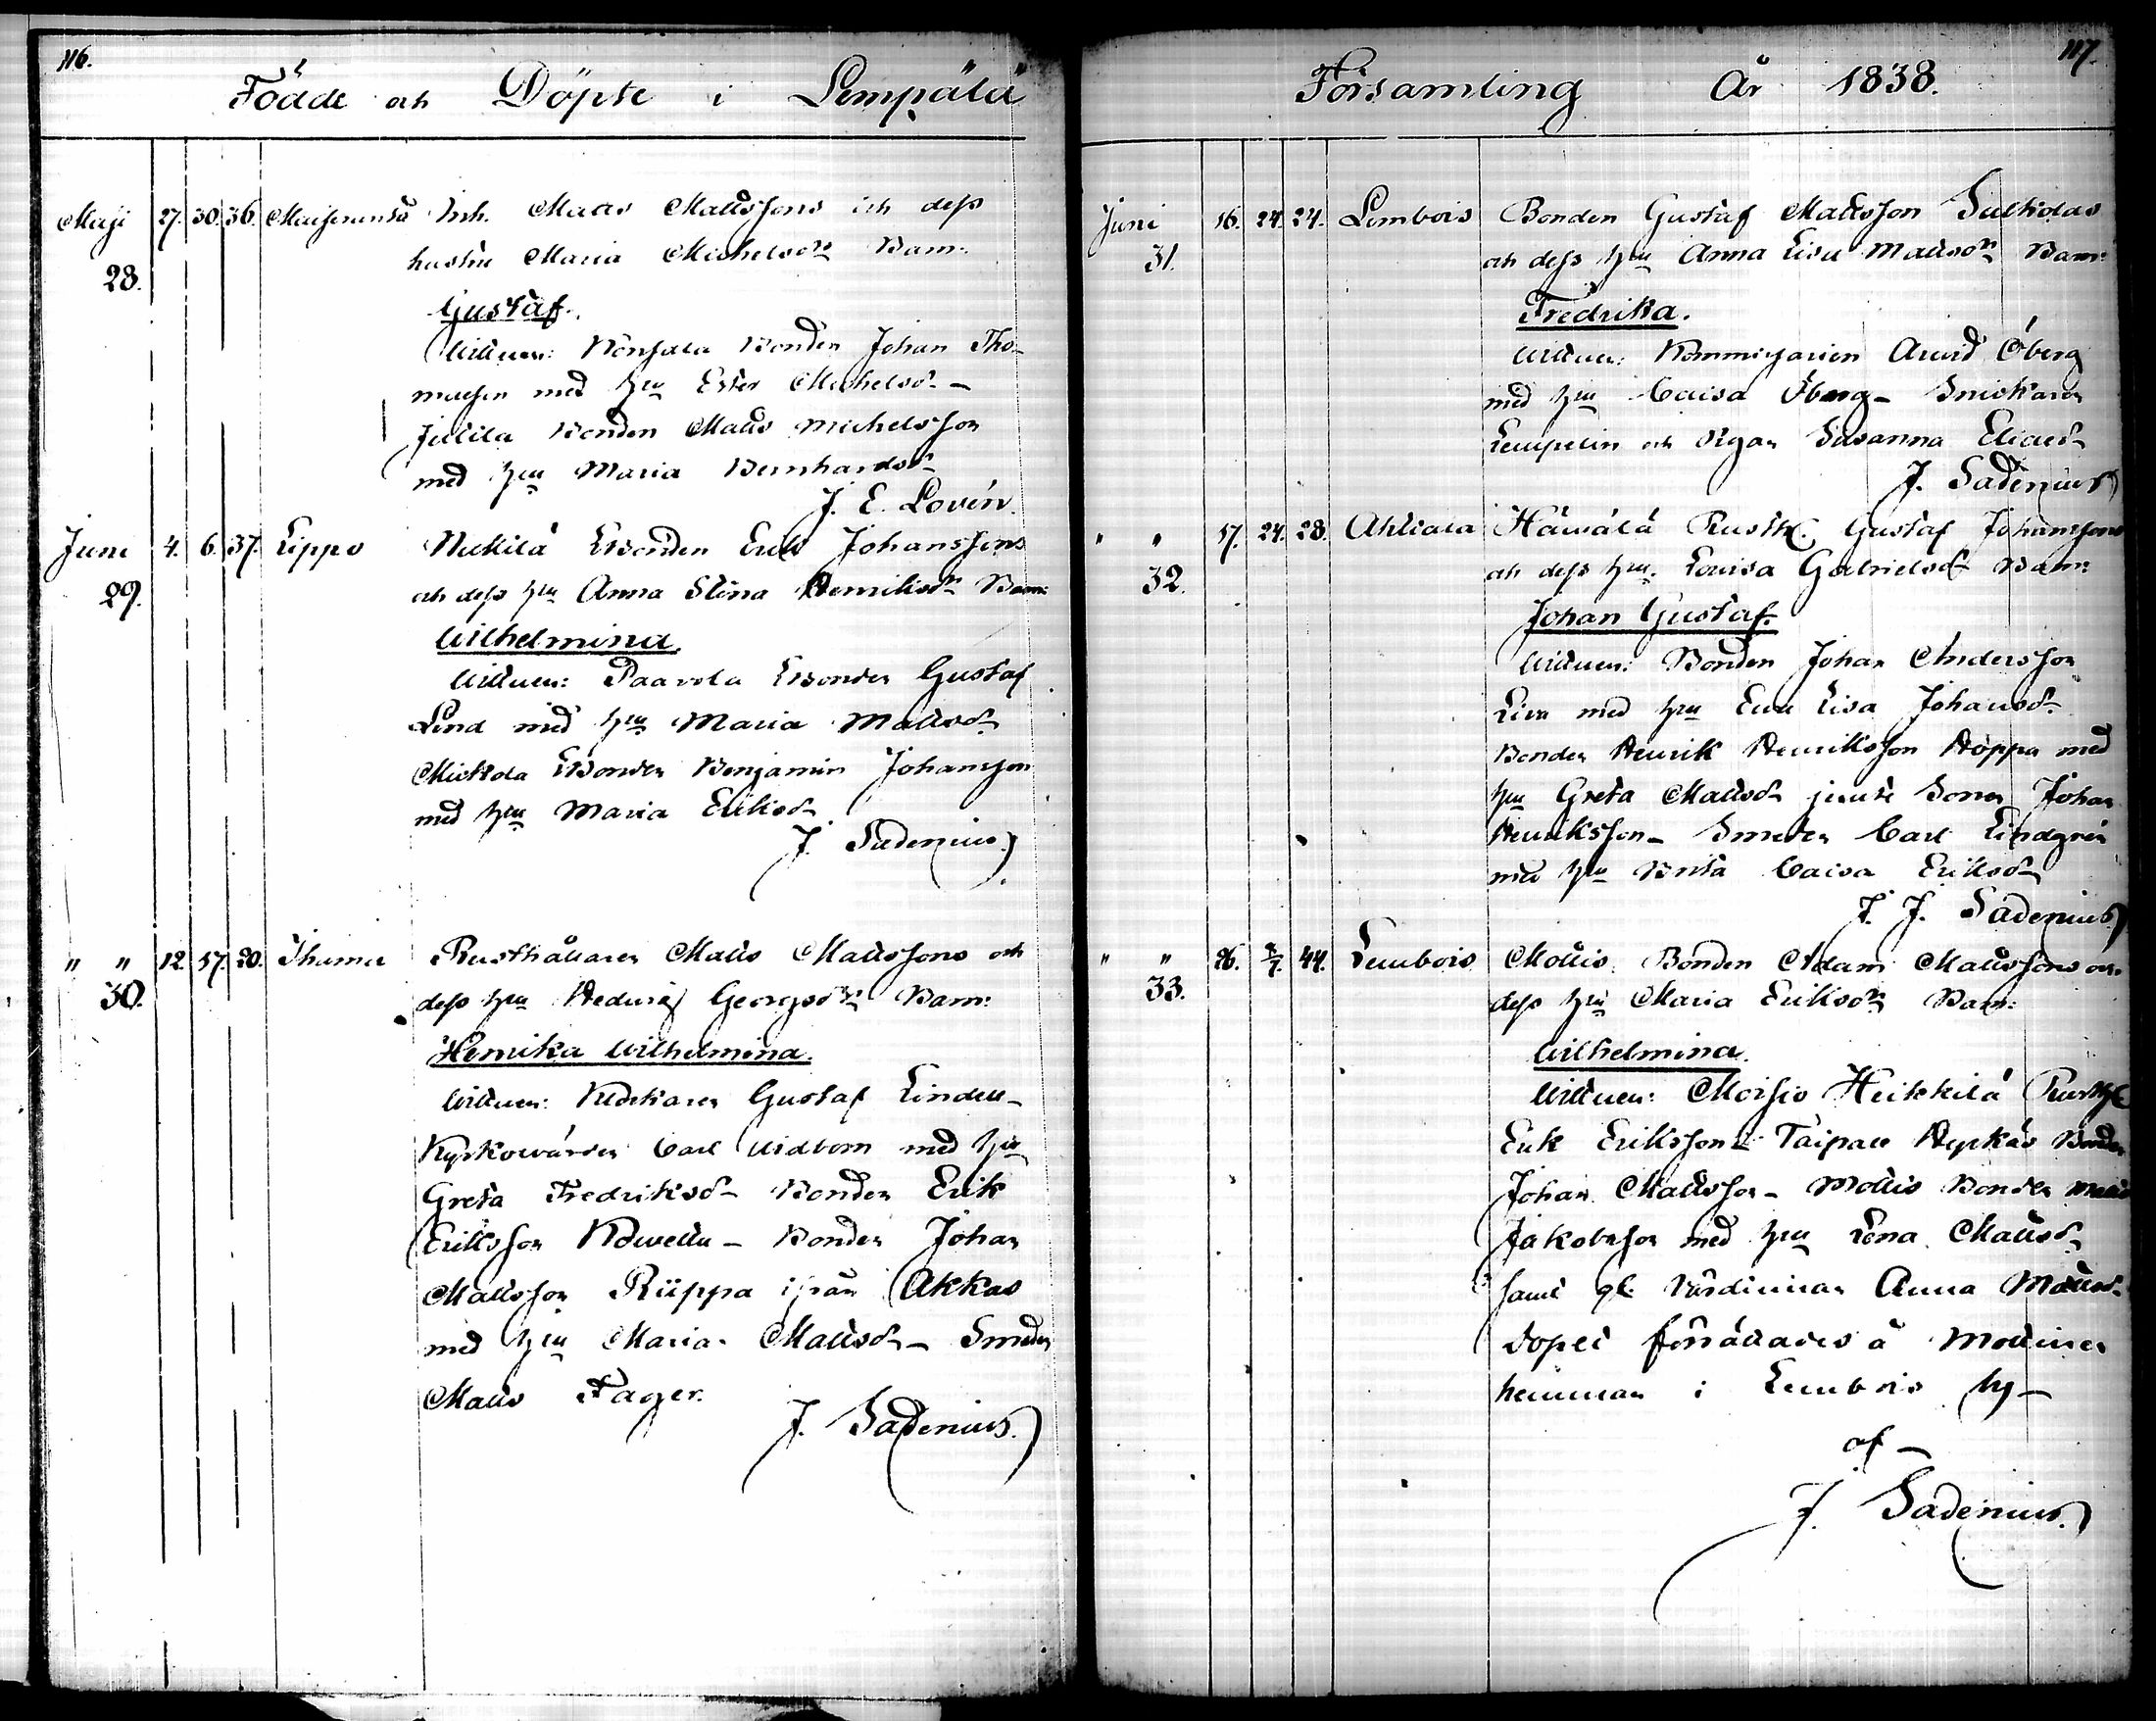 116.
Födde och Döpte i Lempälä
Maji 27. 30. 36. Inh. Matts Mattssons och dess
28. hustru Maria Michelsdr Barn:
Gustaf.
Wittnen: Bonden Johan Tho-
masson med hru Ester Michelsdr -
Bonden Matts Michelsson
med hru Maria Bernhardsdr
J. E. Lovén.
Juni 4. 6. 37. Lippo Bonden Erik Johanssons
29. och dess hru Anna Stina Henriksdr Barn:
Wilhelmina.
Wittnen: Paavola Bonden Gustaf
Lind med hru Maria Mattsdr
Mickola Bonden Benjamin Johansson
med hru Maria Eriksdr
J. Sadenius
" " 12. 17. 20. Rusthållaren Matts Mattssons och
30. dess hru Hedvig Georgsdr Barn:
Henrika Wilhelmina.
Wittnen: Klockaren Gustaf Lindell -
Kyrkowärden Carl Widbom med hru
Greta Fredriksdr - Bonden Erik
Eriksson - Bonden Johan
Mattsson Riippa ifrån Akkas
med hru Maria Mattsdr - Smeden
Matts Fager.
J. Sadenius.
117.
Församling År 1838.
Juni 16. 24. 24. Lembois Bonden Gustaf Mattsson
31. och dess hru Anna Lisa Mattsdr Barn:
Fredrika.
Wittnen: Arvid Öberg
med hru Caisa Öberg - Snickaren
Lempelin och Pigan Susanna Eliaed.
J. Sadenius
" " 17. 24. 28. Ahtiala Rusth. Gustaf Johanssons
32. och dess hru. Lovisa Gabrielsdr Barn:
Johan Gustaf.
Wittnen: Bonden Johan Andersson
med hru Eva Lisa Johansdr
Bonden Henrik Henriksson Hoppa med
hru Greta Mattsdr jemte Sonen Johan
Henriksson - Smeden Carl Lindgrén
med hru Brita Caisa Eriksdr
J. J. Sadenius
" " 26. 1/7. 44. Lembois Mottis Bonden Adam Mattssons och
33. dess hru Maria Eriksdr Barn:
Wilhelmina.
Wittnen: Moisio Heikkilä Rusth
Erik Eriksson - Taipale Hyrkäs Bonden
Johan Mattsson - Mottis Bonden Matts
Jakobsson med hru Lena Mattsd.
samt gl. Värdinnan Anna Mattsd.
Dopet förrättades å
hemman i Lembois by -
af -
J. Sadenius.